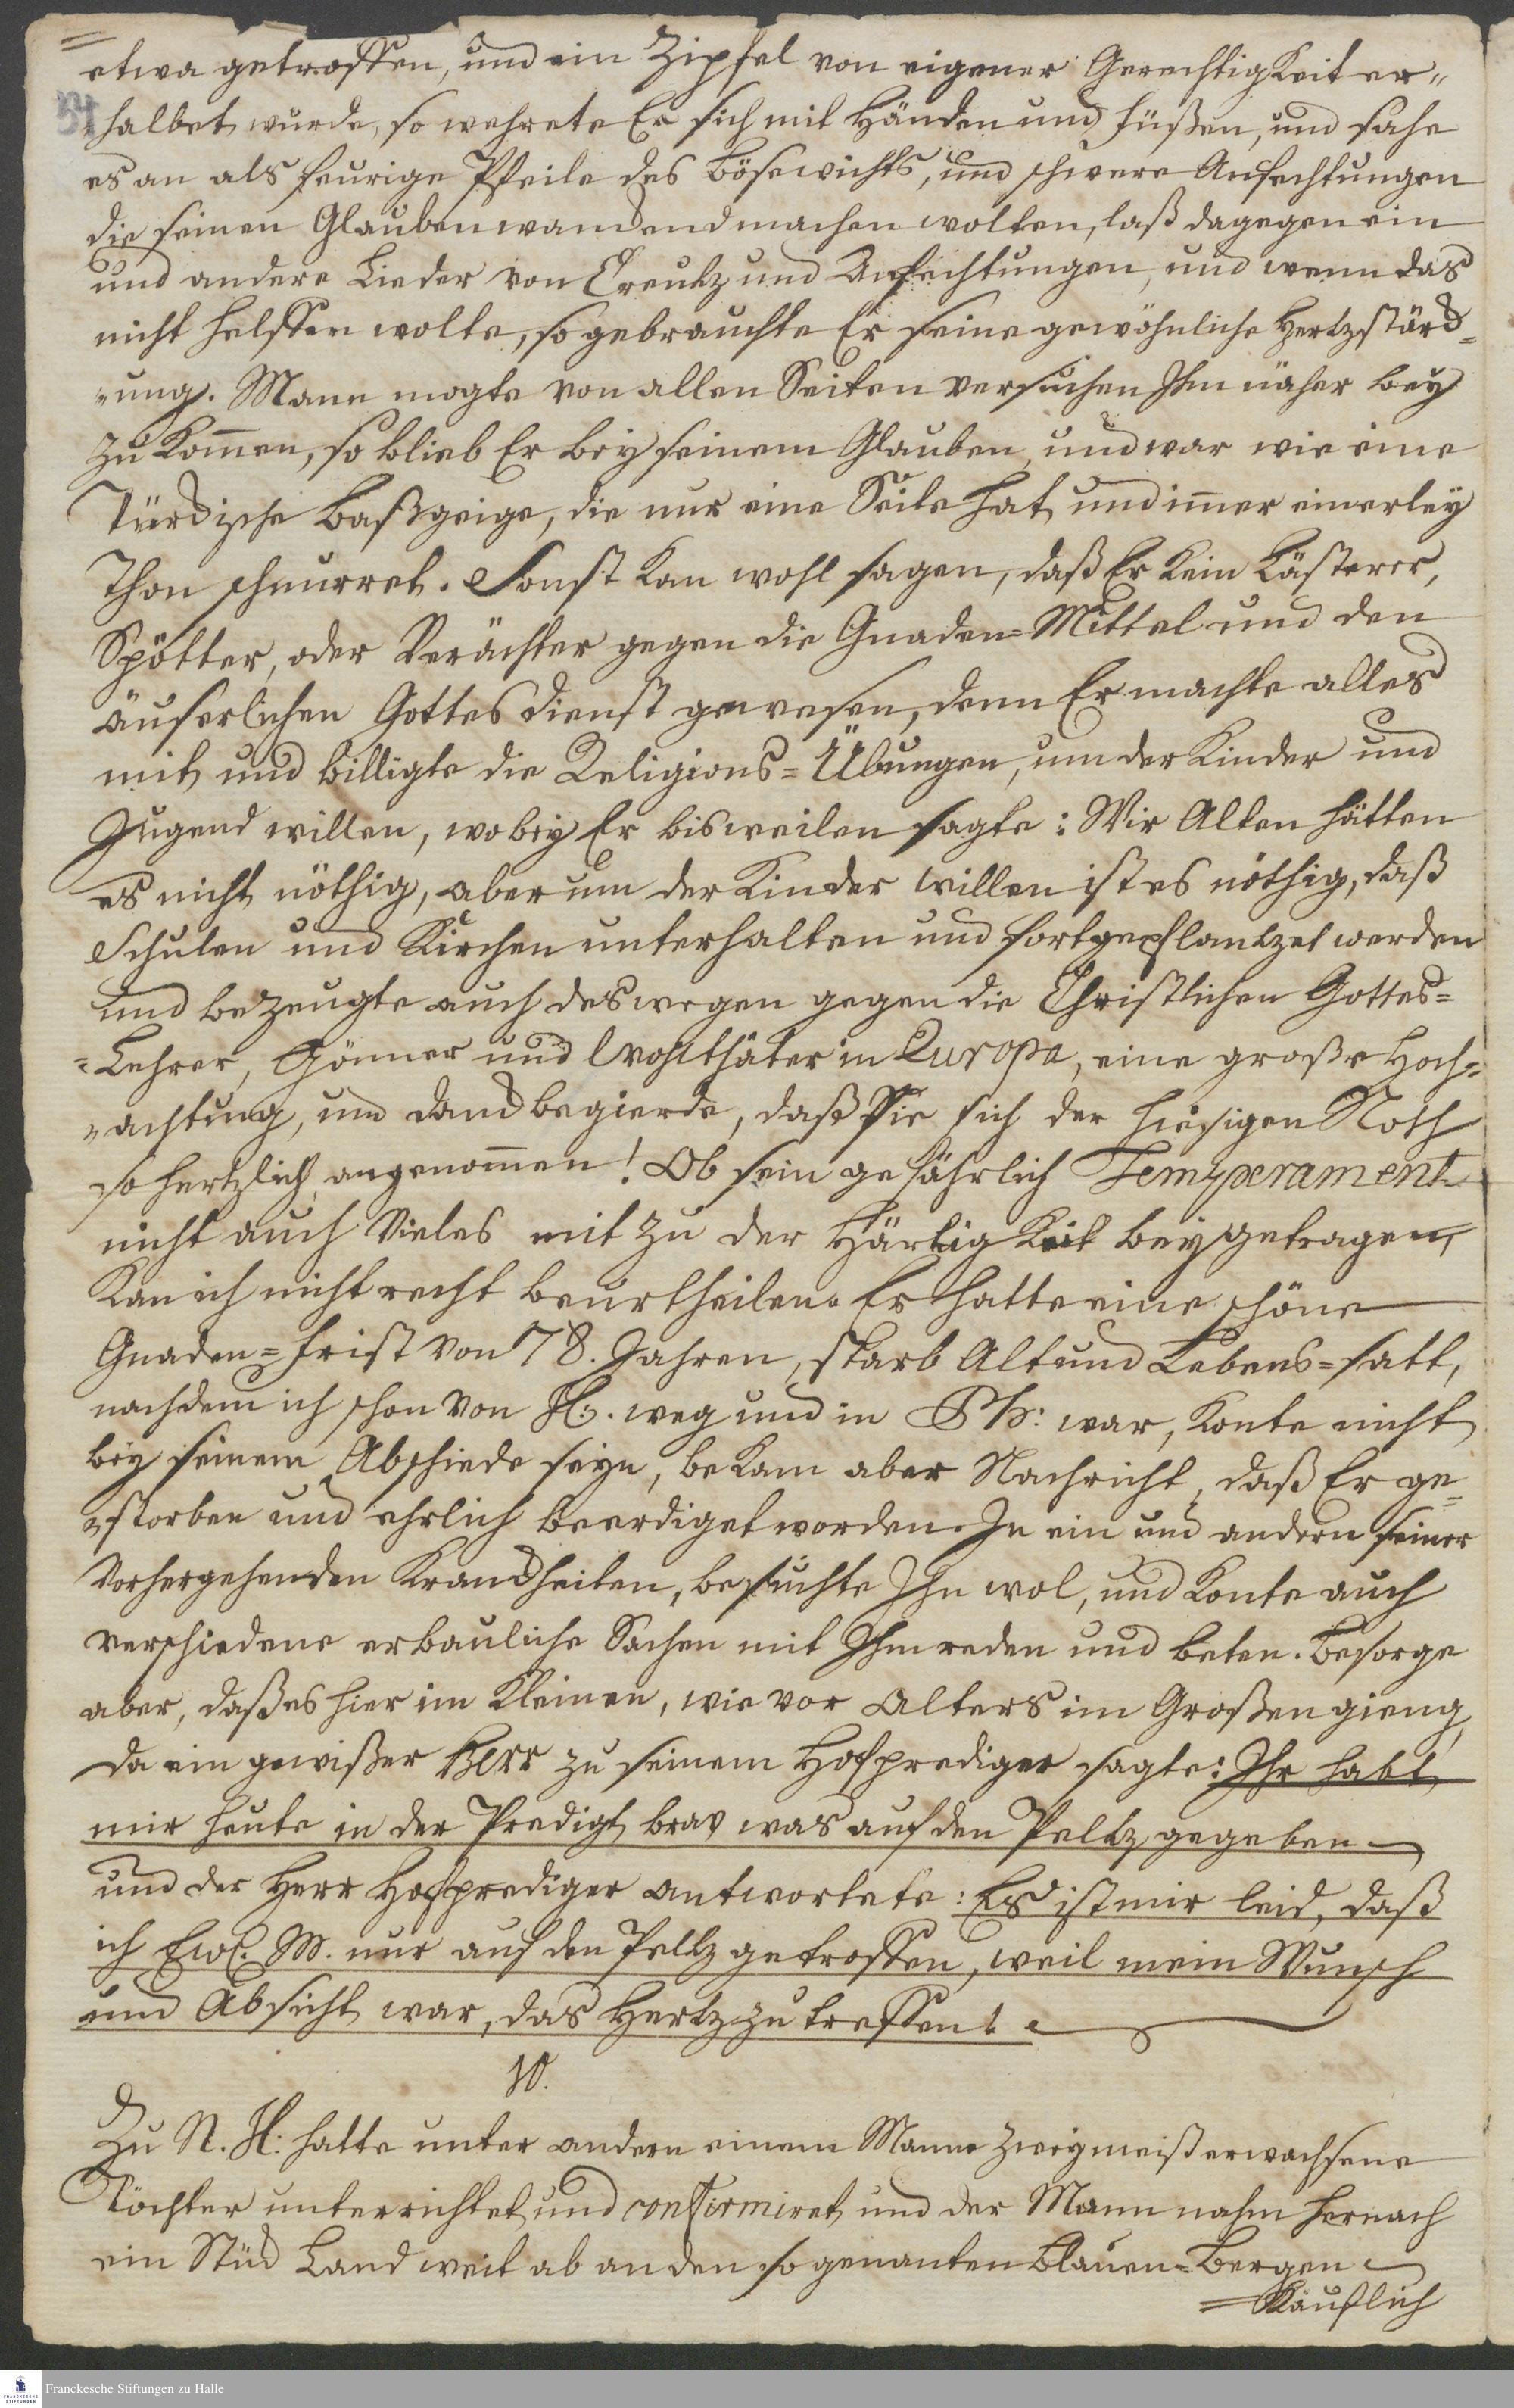 etwa getroffen, und ein Zipfel von eigener Gerechtigkeit er„
54
„halbet wurde, so wehrete Er sich mit Händen und Füßen, und sahe
es an als feurige Pfeile des Bösewichts, und schwere Anfechtungen
die seinen Glauben wanckend machen wolten, laß dagegen ein
und andere Lieder von Creutz und Anfechtungen, und wenn das
nicht helffen wolte, so gebrauchte Er seine gewöhnliche Hertzstärck=
„ung. Mann mogte von allen Seiten versuchen Ihm näher bey
zu kom̄en, so blieb Er bey seinem Glauben, und war wie eine
Türckische Baßgeige, die nur eine Seite hat, und im̄er einerley
Thon schnurret. Sonst kan wohl sagen, daß Er kein Lästerer,
Spötter, oder Verächter gegen die Gnaden=Mittel und den
äuserlichen Gottesdienst gewesen, denn Er machte alles
mit, und billigte die Religions=Übungen, um der Kinder und
Jugend willen, wobey Er bisweilen sagte: Wir Alten hätten
es nicht nöthig, aber um der Kinder willen ist es nöthig, daß
Schulen und Kirchen unterhalten und fortgepflantzet werden
und bezeugte auch deswegen gegen die Christlichen Gottes=
=Lehrer, Gönner und Wohlthäter in Europa, eine große Hoch=
„achtung, und Danckbegierde, daß Sie sich der hiesigen Noth
so hertzlich angenom̄en! Ob sein gefährlich Temperament
nicht auch Vieles mit zu der Härtigkeit beygetragen,
kan ich nicht recht beurtheilen. Er hatte eine schöne
Gnaden=Frist von 78. Jahren, starb Alt und Lebens=satt,
nachdem ich schon von H:. weg und in Ph: war, konte nicht
bey seinem Abschiede seyn, bekam aber Nachricht, daß Er ge=
„storben und ehrlich beerdiget worden. In ein und andern seiner
vorhergehenden Kranckheiten, besuchte Ihn wol, und konte auch
verschiedene erbauliche Sachen mit Ihm reden und beten. Besorge
aber, daß es hier im Kleinen, wie vor Alters im Großen gieng,
da ein gewißer Herr zu seinem Hofprediger sagte: Ihr habt
mir heute in der Predigt brav was auf den Peltz gegeben
und der Herr Hofprediger antwortete: Es ist mir leid, daß
ich Ew. M. nur auf den Peltz getroffen, weil mein Wunsch
und Absicht war, das Hertz zu treffen.
10.
Zu N. H: hatte unter andern einem Manne zwey meist erwachsene
Töchter unterrichtet und confirmiret, und der Mann nahm hernach
ein Stück Land weit ab an den so genanten Blauen=Bergen
=Käuflich
FRANCKESCHE STIFTUNGEN
Franckesche Stiftungen zu Halle